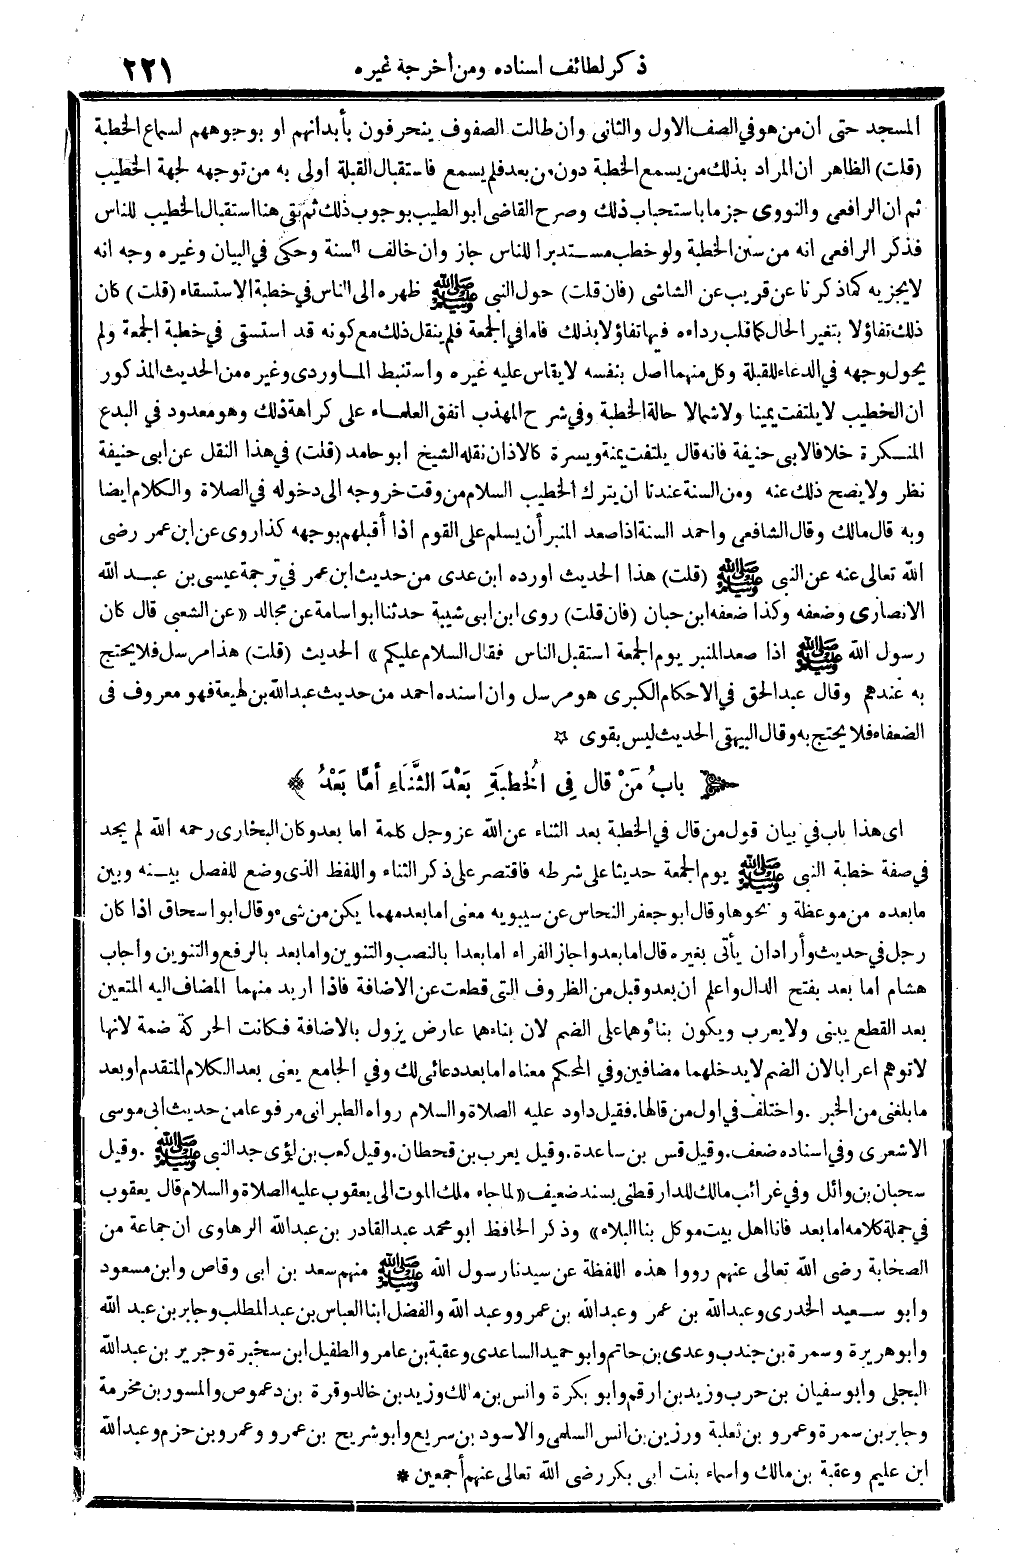 ذكر لطائف اسناده ومن أخرجة غيره ٢٢١
المسجد حتى ان من هو في الصف الاول والثانى وان طالت الصفوف ينحرفون بأبدانهم او بوجوههم لسماع الخطبة
(قلت) الظاهر ان المراد بذلك من يسمع الخطبة دون من بعد فلم يسمع فاستقبال القبلة أولى به من توجهه لجهة الخطيب
ثم ان الرافعى والنووى جزما باستحباب ذلك وصرح القاضى ابو الطيب بوجوب ذلك ثم بقى هنا استقبال الخطيب للناس
فذكر الرافعى انه من سنن الخطبة ولو خطب مستدبرا للناس جاز وان خالف السنة وحكى في البيان وغيره وجه انه
لا يجزيه كما ذكرنا عن قريب عن الشاشى (فان قلت) حول النبى ﷺ ظهره الى الناس في خطبة الاستسقاء (قلت) كان
ذلك تفاؤلا بتغير الحال كما قلب رداءه فيها تفاؤلا بذلك فاما في الجمعة فلم ينقل ذلك مع كونه قد استسقى في خطبة الجمعة ولم
يحول وجهه في الدعاء للقبلة وكل منهما اصل بنفسه لا يقاس عليه غيره واستنبط الماوردى وغيره من الحديث المذكور
ان الخطيب لا يلتفت يمينا ولا شمالا حالة الخطبة وفي شرح المهذب اتفق العلماء على كراهة ذلك وهو معدود في البدع
المنكرة خلافا لابى حنيفة فانه قال يلتفت يمنة ويسرة كالاذان نقله الشيخ ابو حامد (قلت) في هذا النقل عن ابى حنيفة
نظر ولا يصح ذلك عنه ومن السنة عندنا ان يترك الخطيب السلام من وقت خروجه الى دخوله في الصلاة والكلام ايضا
وبه قال مالك وقال الشافعى واحمد السنة اذا صعد المنبر أن يسلم على القوم اذا أقبلهم بوجهه كذا روى عن ابن عمر رضى
الله تعالى عنه عن النبى ﷺ (قلت) هذا الحديث اورده ابن عدى من حديث ابن عمر في ترجمة عيسى بن عبد الله
الانصارى وضعفه وكذا ضعفه ابن حبان (فان قلت) روى ابن ابى شيبة حدثنا ابو اسامة عن مجالد «عن الشعبى قال كان
رسول الله ﷺ اذا صعد المنبر يوم الجمعة استقبل الناس فقال السلام عليكم» الحديث (قلت) هذا مرسل فلا يحتج
به عندهم وقال عبد الحق في الاحكام الكبرى هو مرسل وان اسنده احمد من حديث عبد الله بن لهيعة فهو معروف فى
الضعفاء فلا يحتج به وقال البيهقى الحديث ليس بقوى ☆
﴿ بابُ مَنْ قال فِى الْخطبَةِ بَعْدَ الثَّنَاءِ أمَّا بَعْدُ ﴾
اى هذا باب في بيان قول من قال في الخطبة بعد الثناء عن الله عز وجل كلمة اما بعد وكان البخارى رحمه الله لم يجد
في صفة خطبة النبى ﷺ يوم الجمعة حديثا على شرطه فاقتصر على ذكر الثناء واللفظ الذى وضع للفصل بينه وبين
ما بعده من موعظة و نحوها وقال ابو جعفر النحاس عن سيبويه معنى اما بعد مهما يكن من شىء وقال ابو اسحاق اذا كان
رجل في حديث وأراد ان يأتى بغيره قال اما بعد واجاز الفراء اما بعدا بالنصب والتنوين واما بعد بالرفع والتنوين واجاب
هشام اما بعد بفتح الدال واعلم ان بعد وقبل من الظروف التى قطعت عن الاضافة فاذا اريد منهما المضاف اليه المتعين
بعد القطع يبنى ولا يعرب ويكون بناؤهما على الضم لان بناءهما عارض يزول بالاضافة فكانت الحركة ضمة لانها
لا توهم اعرابا لان الضم لا يدخلهما مضافين وفي المحكم معناه اما بعد دعائى لك وفي الجامع يعنى بعد الكلام المتقدم او بعد
ما بلغنى من الخبر . واختلف في اول من قالها . فقيل داود عليه الصلاة والسلام رواه الطبرانى مرفوعا من حديث ابى موسى
الاشعرى وفي اسناده ضعف . وقيل قس بن ساعدة . وقيل يعرب بن قحطان . وقيل كعب بن لؤى جد النبى ﷺ . وقيل
سحبان بن وائل وفي غرائب مالك للدارقطنى بسند ضعيف «لما جاء ملك الموت الى يعقوب عليه الصلاة والسلام قال يعقوب
في جملة كلامه اما بعد فانا اهل بيت موكل بنا البلاء» وذكر الحافظ ابو محمد عبد القادر بن عبد الله الرهاوى ان جماعة من
الصحابة رضى الله تعالى عنهم رووا هذه اللفظة عن سيدنا رسول الله ﷺ منهم سعد بن ابى وقاص وابن مسعود
وابو سعيد الخدرى وعبد الله بن عمر وعبد الله بن عمرو وعبد الله والفضل ابنا العباس بن عبد المطلب وجابر بن عبد الله
وابو هريرة وسمرة بن جندب وعدى بن حاتم وابو حميد الساعدى وعقبة بن عامر والطفيل ابن سخبرة وجرير بن عبد الله
البجلى وابو سفيان بن حرب وزيد بن ارقم وابو بكرة وانس بن مالك وزيد بن خالد وقرة بن دعموص والمسور بن مخرمة
وجابر بن سمرة وعمرو بن ثعلبة ورزين بن انس السلمى والاسود بن سريع وابو شريح بن عمرو وعمرو بن حزم وعبد الله
ابن عليم وعقبة بن مالك واسماء بنت ابى بكر رضى الله تعالى عنهم أجمعين *